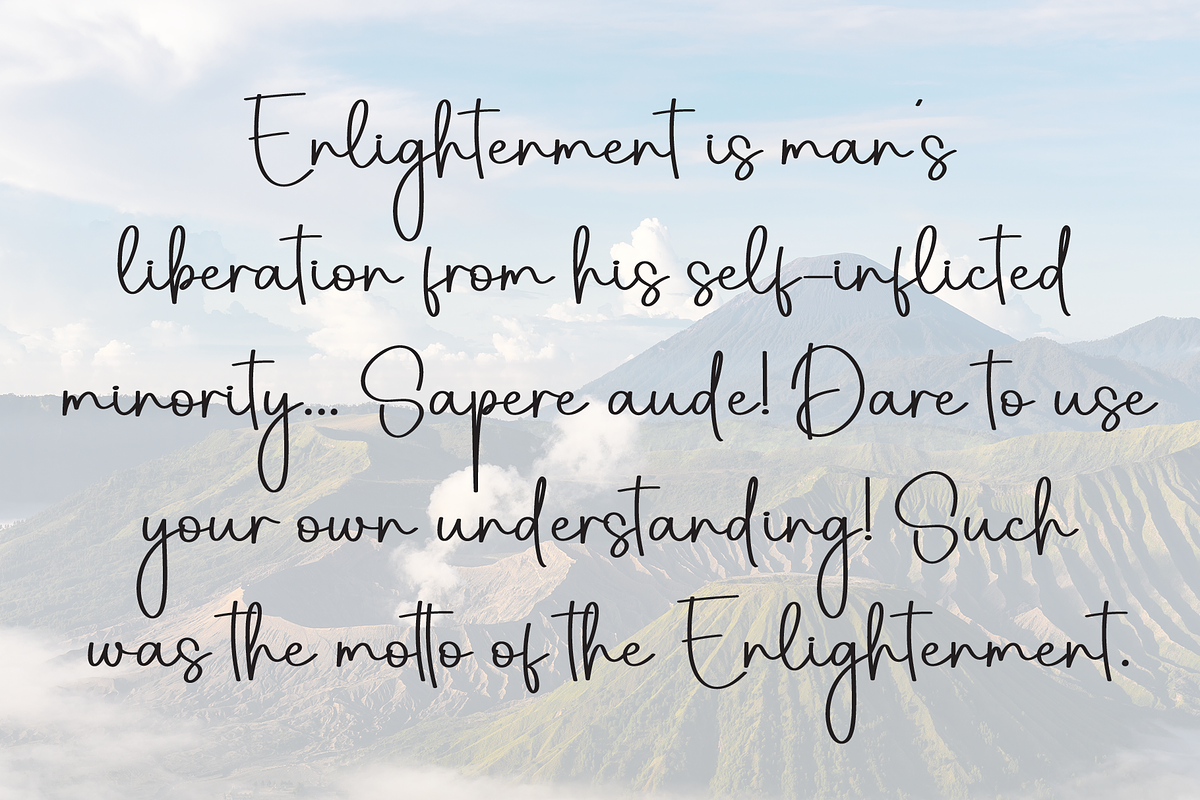 Enlightenment is man's
liberation from his self-inflicted
minority... Sapere aude! Dare to use
your own understanding! Such
was the motto of the Enlightenment.